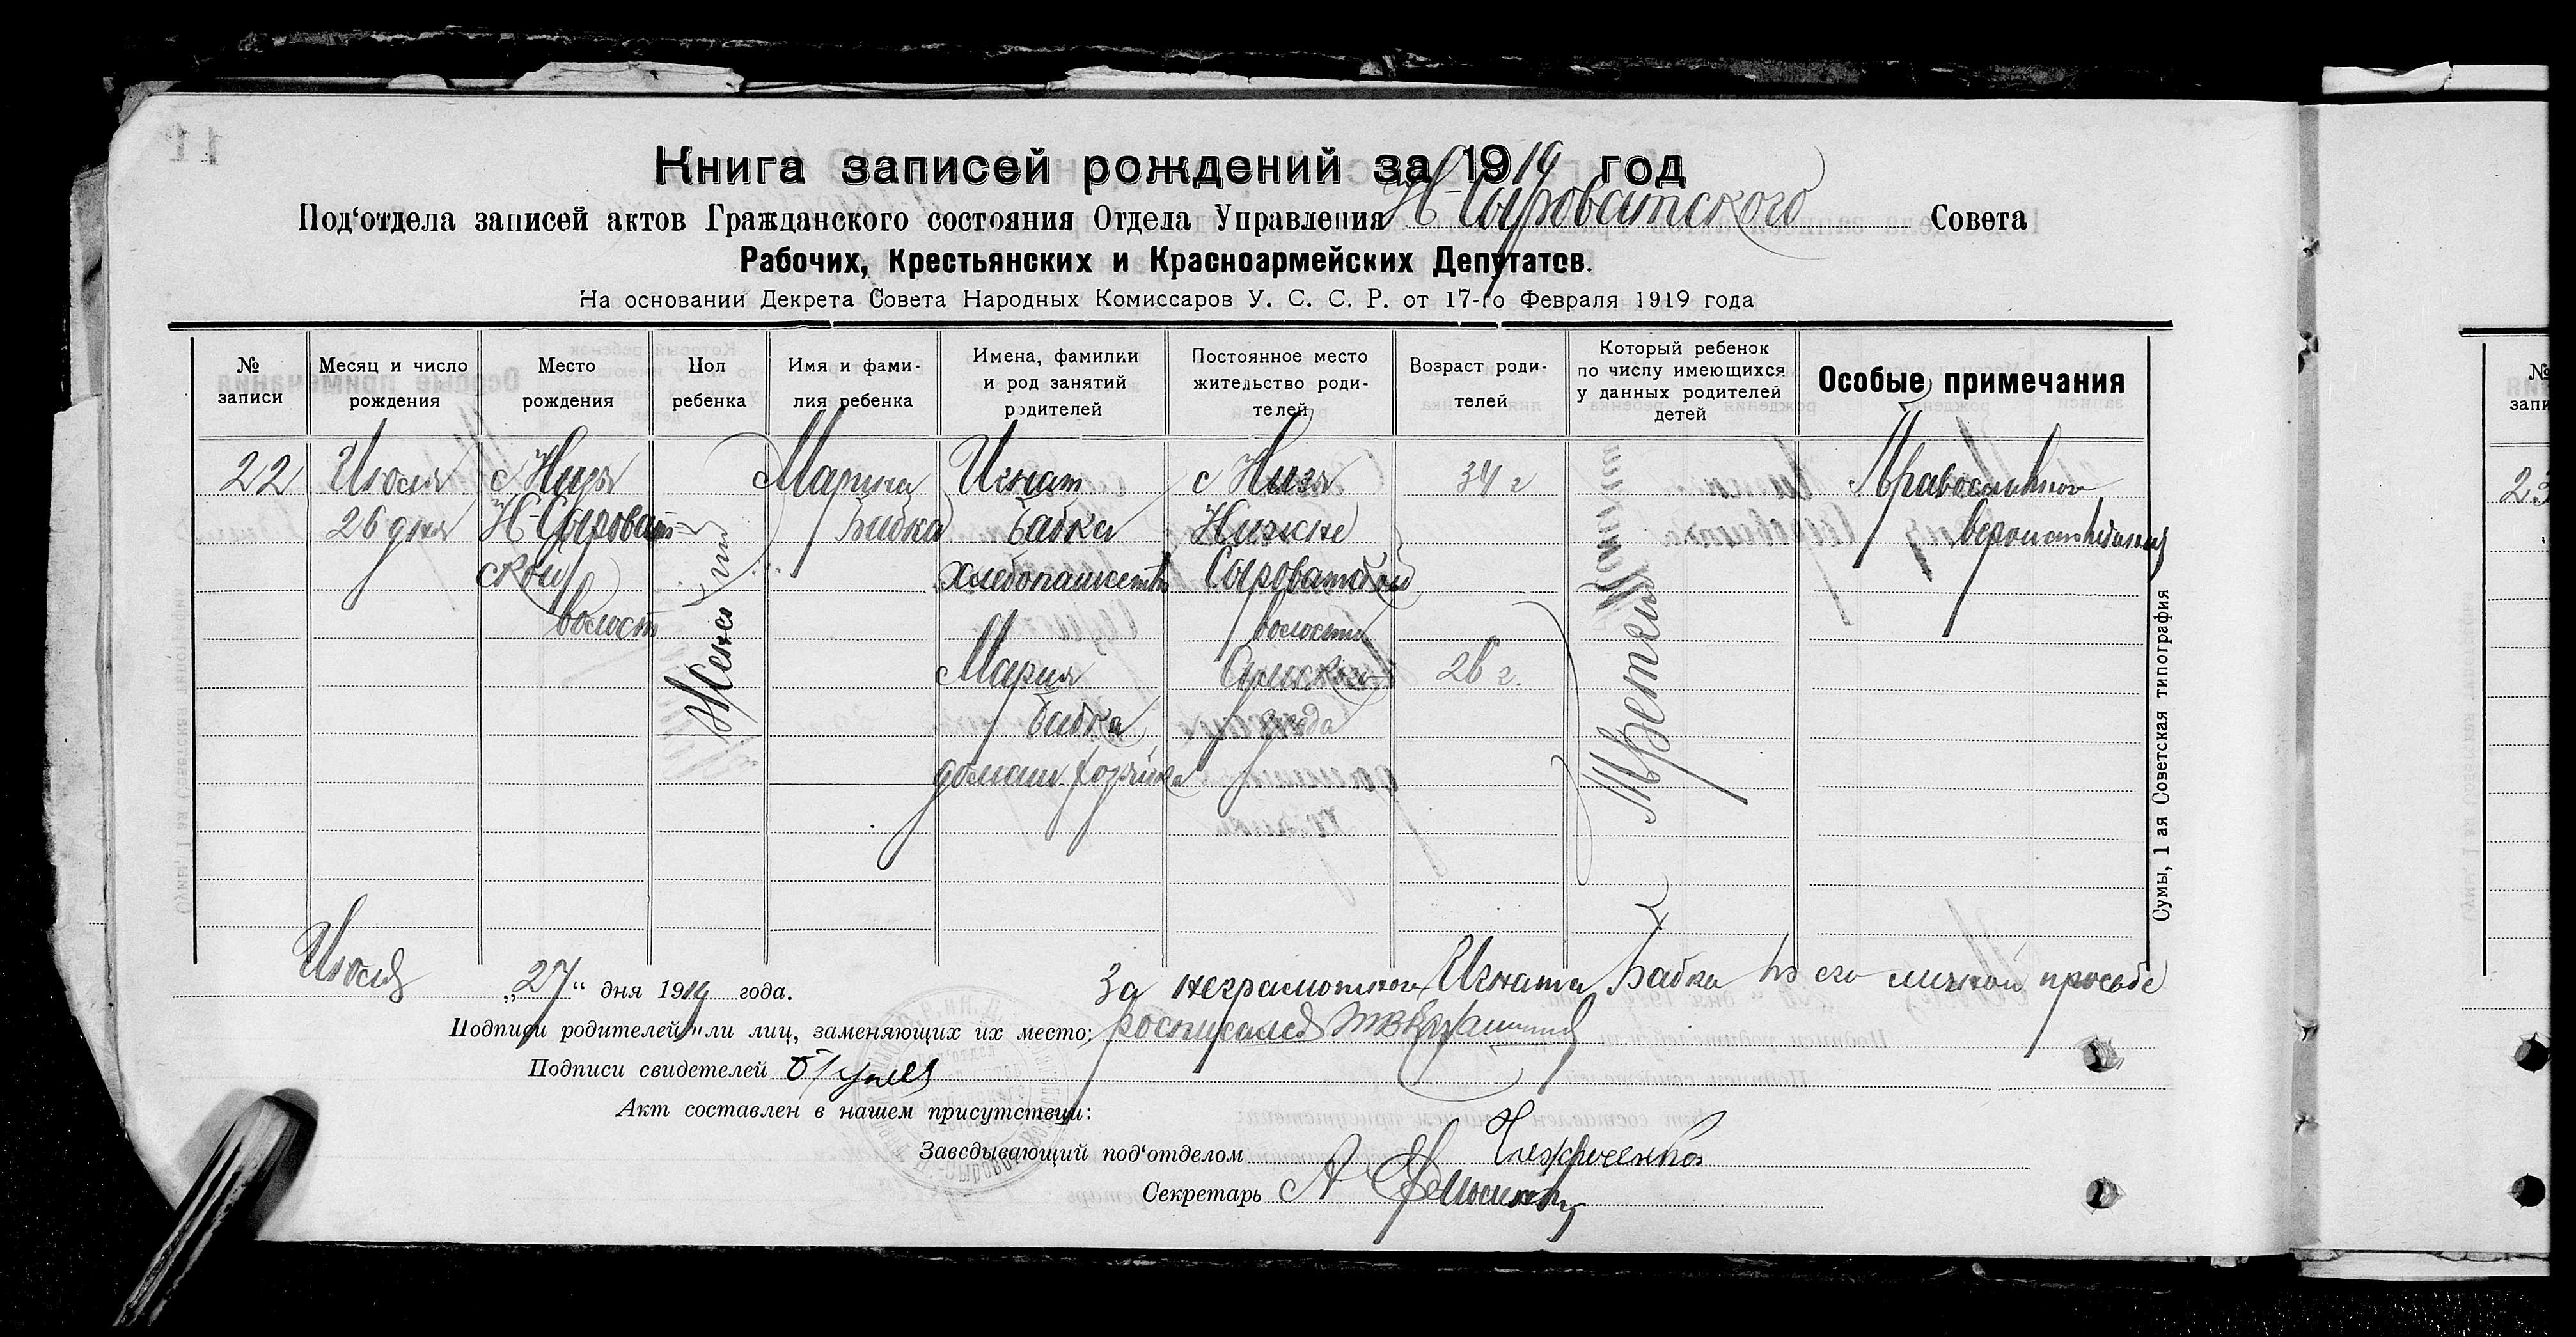 Книга записей рождений за 1919 год
Под‘отдела записей актов Гражданского состояния Отдела Управления Н-Сыроватского Совета
Рабочих, Крестьянских и Красноармейских Депутатов.
На основании Декрета Совета Народных Комиссаров У. С. С. Р. от 17-го Февраля 1919 года
№ записи
Месяц и число рождения
Место рождения
Пол ребенка
Имя и фами-
лия ребенка
Имена, фамилии
и род занятий
родителей
Постоянное место
жительство роди-
телей
Возраст роди-
телей
Который ребенок
по числу имеющихся
у данных родителей
детей
Особые примечания
22
Июля
26 дня
с Низы
Н-Сыроват-
ской
волости
Женский
Марина
Бабка
Игнат
Бабка
хлебопашество
Мария
Бабка
домаш хозяйка
с Низы
Нижне
Сыроватской
волости
Сумского
уезда
34 г
26 г.
Третий
Православного
вероисповедания
Сумы, 1 ая Советская типография
Июля „27“ дня 1919 года.
За неграмотного Игната Бабка по его личной просьбе
Подписи родителей или лиц, заменяющих их место: росписался
Подписи свидетелей
Акт составлен в нашем присутствии:
Заведывающий под‘отделом
Секретарь А
№
запи
23